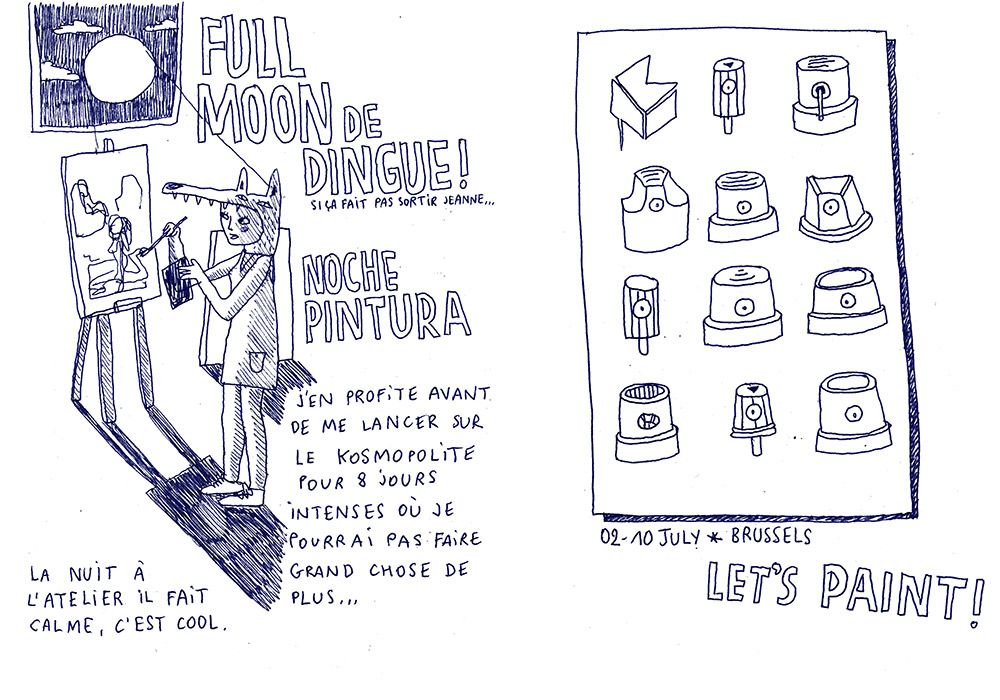 FULL
MOON DE
DINGUE!
SI ÇA FAIT PAS SORTIR JEANNE,,,
NOCHE
PINTURA
J'EN PROFITE AVANT
DE ME LANCER SUR
LE KOSMOPOLITE
POUR 8 JOURS
INTENSES OÙ JE
POURRAI PAS FAIRE
GRAND CHOSE DE
PLUS,,,
LA NUIT À
L'ATELIER IL FAIT
CALME, C'EST COOL.
02-10 JULY * BRUSSELS
LET'S PAINT!